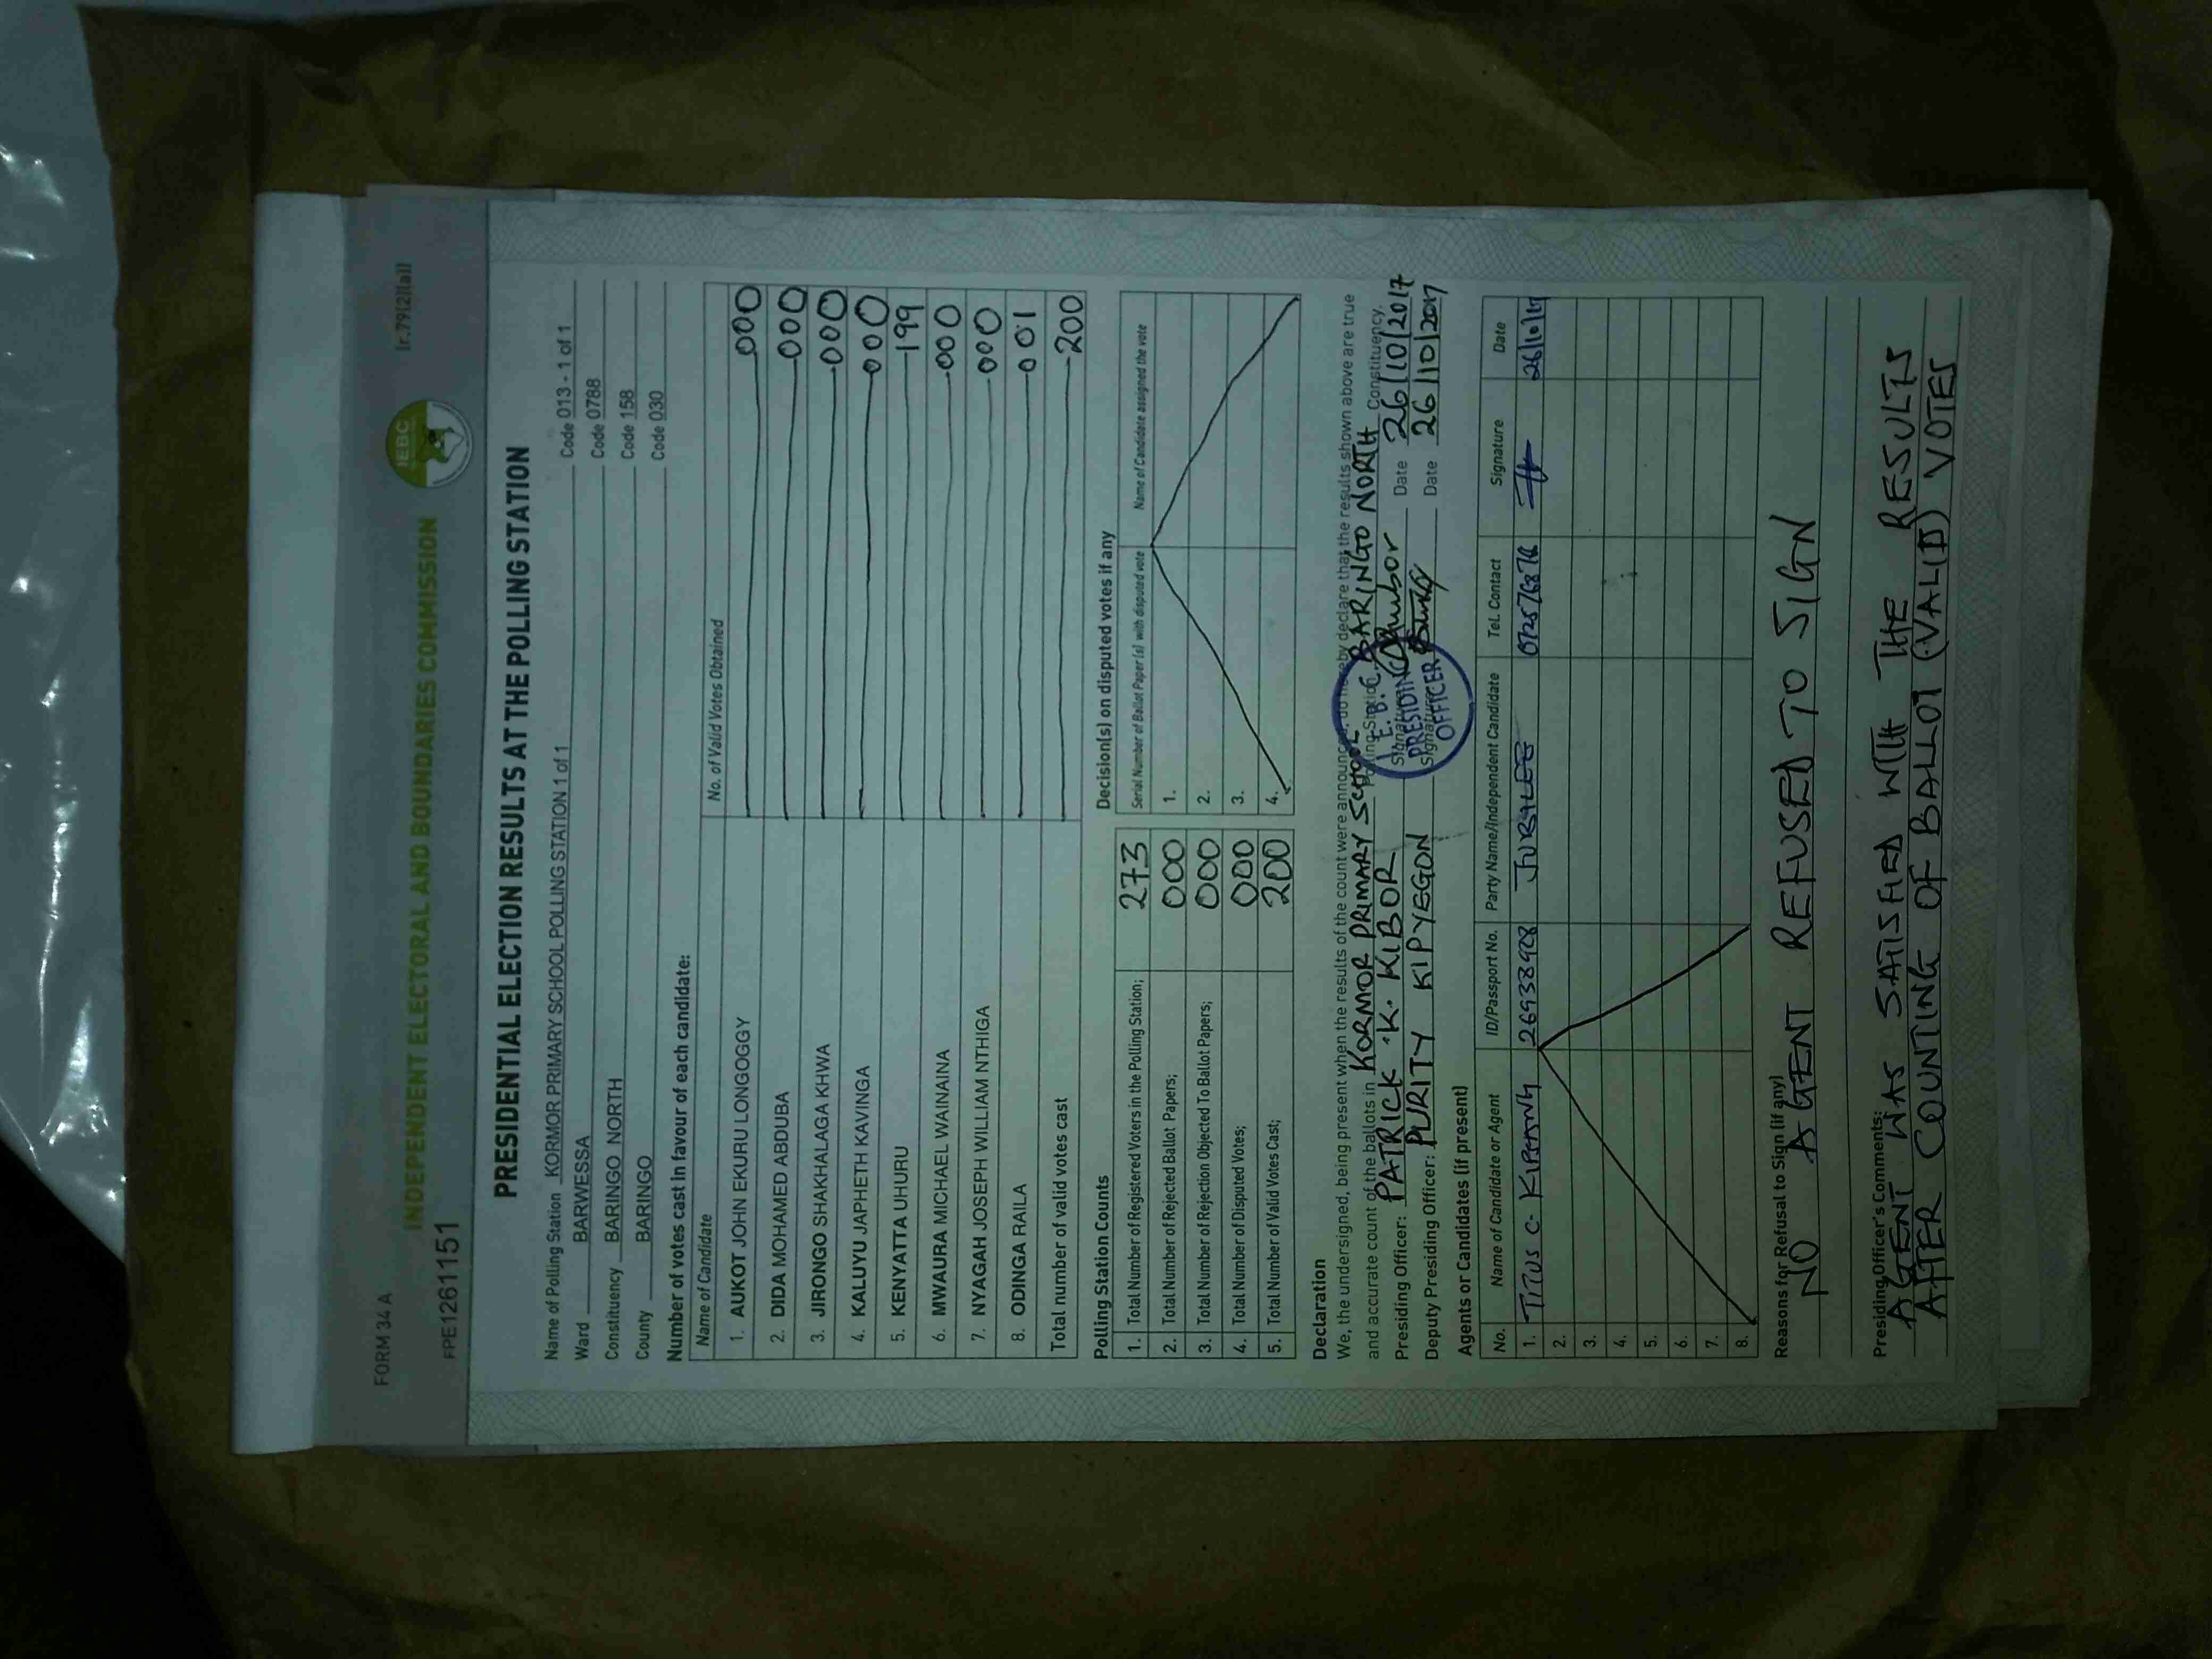 FORM 34 A
(r.79(2)(a))
INDEPENDENT ELECTORAL AND BOUNDARIES COMMISSION
IEBC
FPE12611151
PRESIDENTIAL ELECTION RESULTS AT THE POLLING STATION
Name of Polling Station KORMOR PRIMARY SCHOOL POLLING STATION 1 of 1 Code 013 - 1 of 1
Ward BARWESSA Code 0788
Constituency BARINGO NORTH Code 158
County BARINGO Code 030
Number of votes cast in favour of each candidate:
Name of Candidate No. of Valid Votes Obtained
1. AUKOT JOHN EKURU LONGOGGY 000
2. DIDA MOHAMED ABDUBA 000
3. JIRONGO SHAKHALAGA KHWA 000
4. KALUYU JAPHETH KAVINGA 000
5. KENYATTA UHURU 199
6. MWAURA MICHAEL WAINAINA 000
7. NYAGAH JOSEPH WILLIAM NTHIGA 000
8. ODINGA RAILA 001
Total number of valid votes cast 200
Polling Station Counts
1. Total Number of Registered Voters in the Polling Station; 273
2. Total Number of Rejected Ballot Papers; 000
3. Total Number of Rejection Objected To Ballot Papers; 000
4. Total Number of Disputed Votes; 000
5. Total Number of Valid Votes Cast; 200
Decision(s) on disputed votes if any
Serial Number of Ballot Paper(s) with disputed vote Name of Candidate assigned the vote
1.
2.
3.
4.
Declaration
We, the undersigned, being present when the results of the count were announced, do hereby declare that the results shown above are true
and accurate count of the ballots in KORMOR PRIMARY SCHOOL Polling Station BARINGO NORTH Constituency.
Presiding Officer: PATRICK K. KIBOR Signature Date 26/10/2017
Deputy Presiding Officer: PURITY KIPYEGON Signature Date 26/10/2017
I.E.B.C
PRESIDING
OFFICER
Agents or Candidates (if present)
No. Name of Candidate or Agent ID/Passport No. Party Name/Independent Candidate Tel. Contact Signature Date
1. TITUS C. 26938928 JUBILEE 26/10/17
2.
3.
4.
5.
6.
7.
8.
Reasons for Refusal to Sign (if any)
NO AGENT REFUSED TO SIGN
Presiding Officer's Comments:
AGENT WAS SATISFIED WITH THE RESULTS
AFTER COUNTING OF BALLOT (VALID) VOTES